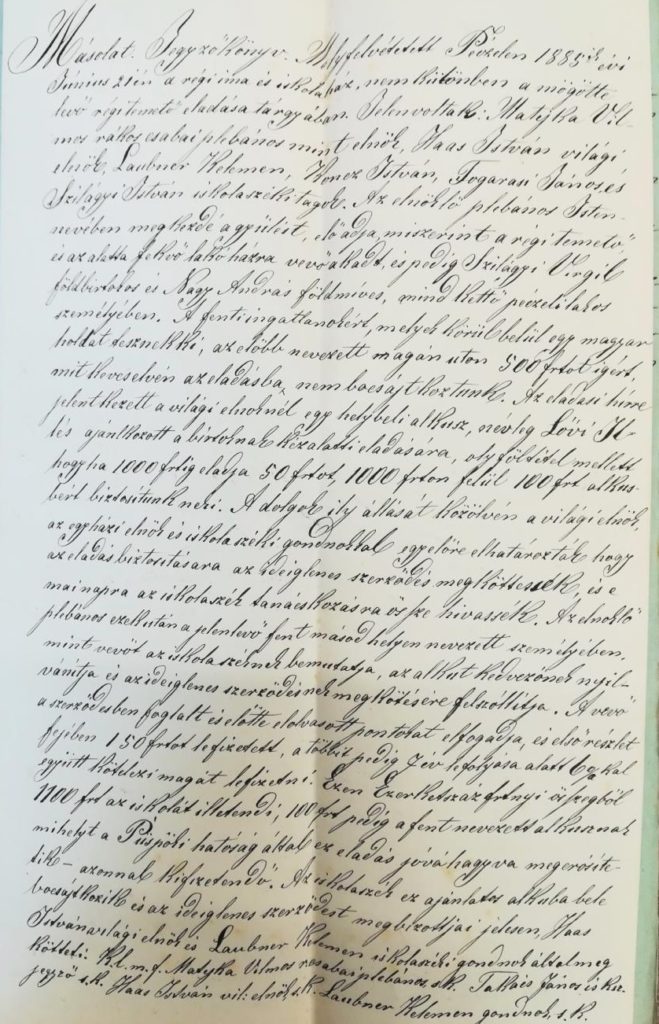 Másolat. Jegyzőkönyv. Mely felvétetett Péczelen 1885ik évi
Június 21én a régi ima és iskolaház, nem különben a mögötte
levő régi temető eladása tárgyában. Jelen voltak: Matyka Vil-
mos rákos csabai plébános mint elnök, Haas István világi
elnök, Laubner Kelemen, Koncz István, Fogarasi János, és
Szilágyi István iskolaszéki tagok. Az elnöklő plébános Isten
nevében megkezdé a gyűlést, előadja, miszerint a régi temető
és az alatta fekvő lakó házra vevő akadt, és pedig Szilágyi Virgil
földbirtokos és Nagy András földmíves, mind kettő péczeli lakos
személyében. A fenti ingatlanokért, melyek körül belül egy magyar
holdat tesznek ki, az előbb nevezett magán uton 500 frtot igért,
mit keveselvén az eladásba nem bocsájtkoztunk. Az eladási hírre
jelentkezett a világi elnöknél egy helybeli alkusz, névleg Lövi Il-
lés ajánlkozott a birtoknak kéz alatti eladására, oly föltétel mellett
hogy ha 1000 frtig eladja 50 frtot, 1000 frton felül 100 frt alkus-
bért biztosítunk neki. A dolgok ily állását közölvén a világi elnök,
az egyházi elnök és iskolaszéki gondnokkal egyelőre elhatározták hogy
az eladás biztosítására az ideiglenes szerződés megköttessék, és e
mai napra az iskolaszék tanácskozásra össze hivassék. Az elnöklő
plébános ezek után a jelenlevő fent másod helyen nevezett személyében,
mint vevőt az iskolaszéknek bemutatja, az alkut kedvezőnek nyil-
vánítja és az ideiglenes szerződésnek megkötésére felszóllítja. A vevő
a szerződésben foglalt és előtte elolvasott pontokat elfogadja, és első részlet
fejében 150 frtot lefizetett, a többit pedig 7 év lefolyása alatt 6% kal
együtt kötelezi magát lefizetni. Ezen Ezerkétszáz frtnyi összegből
1100 frt az iskolát illetendi, 100 frt pedig a fent nevezett alkusznak
mihelyt a Püspöki hatóság által ez eladás jóváhagyva megerősítte-
tik – azonnal kifizetendő. Az iskolaszék ez ajánlatos alkuba bele
bocsájtkozik és az ideiglenes szerződést megbizottjai jelesen, Haas
István világi elnök és Laubner Kelemen iskolaszéki gondnok által meg
kötteti. K. l. m. f. Matyka Vilmos rcsabai plébános s.k. Takáts János
jegyző s.k. Haas István vil: elnök s.k. Laubner Kelemen gondnok s.k.